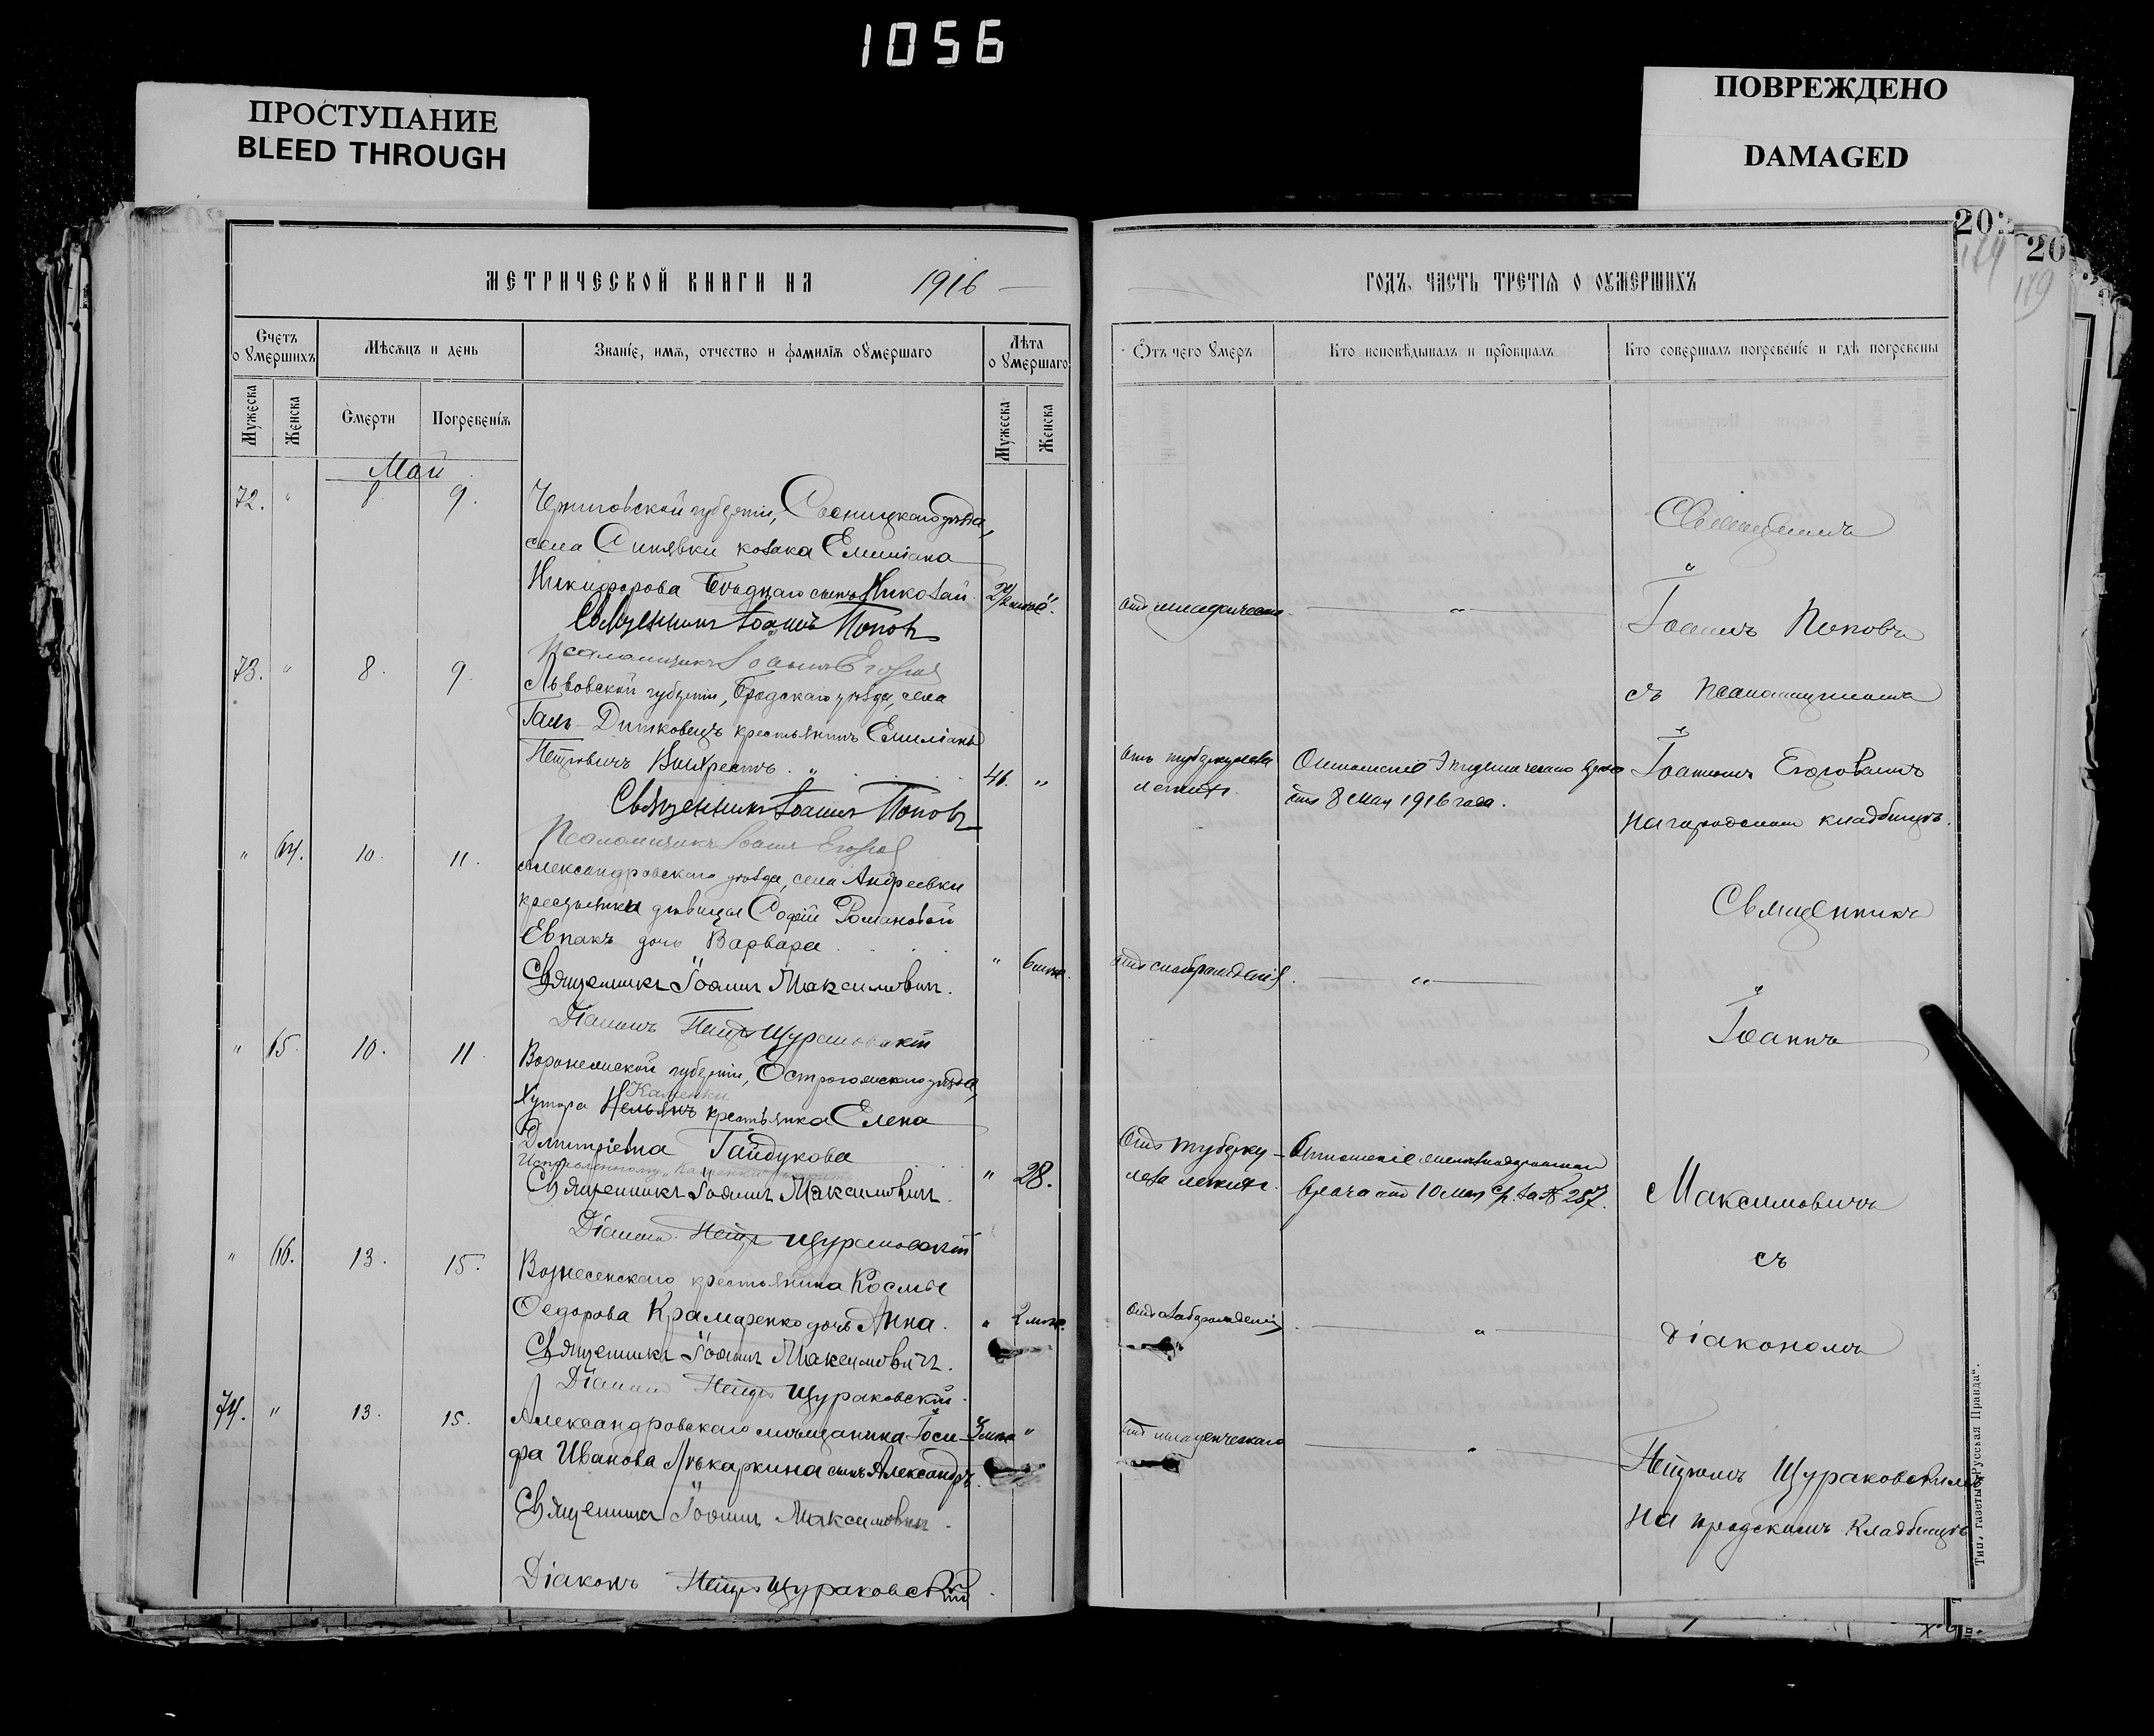 1056
ПРОСТУПАНИЕ
BLEED THROUGH
ПОВРЕЖДЕНО
DAMAGED
202
20
179
МЕТРИЧЕСКОЙ КНИГИ НА 1916
ГОДЪ, ЧАСТЬ ТРЕТІЯ О ОУМЕРШИХЪ
Счетъ о умершихъ
Мѣсяцъ и день
Званіе, имя, отчество и фамилія оумершаго
Лѣта оумершаго
Мужеска
Женска
Смерти
Погребенія
Мужеска
Женска
Отъ чего умеръ
Кто исповѣдывалъ и пріобщалъ
Кто совершалъ погребеніе и гдѣ погребены
Май
72. " 8. 9.
Черниговской губерніи, Сосницкаго уѣзда,
села Синявки козака Емиліана
Никифорова Бѣднаго сынъ Николай
Священникъ Іоаннъ Поповъ
Псаломщикъ Іоаннъ
73. " 8. 9.
Львовской губерніи, Бродскаго уѣзда, села
Гаи-Дитковецъ крестьянинъ Емиліанъ
Петровичъ 46. "
отъ туберкулеза легкихъ.
Отношеніе врача
отъ 8 мая 1916 года.
Священникъ Іоаннъ Поповъ
Псаломщикъ Іоаннъ
Священникъ
Іоаннъ Поповъ
съ псаломщикомъ
Іоанномъ
на городскомъ кладбищѣ.
" 64. 10. 11.
Александровскаго уѣзда, села Андреевки
крестьянки дѣвицы Софіи Романовой
Евпакъ дочь Варвара " 6 мѣс.
Священникъ Іоаннъ Максимовичъ.
Діаконъ Петръ Щураковскій
" 65. 10. 11.
Воронежской губерніи, Острогожскаго уѣзда,
Каменки
хутора крестьянка Елена
Дмитріевна Гайдукова " 28.
отъ туберкулеза легкихъ.
Отношеніе
врача отъ 10 мая с/г. за № 287.
Священникъ Іоаннъ Максимовичъ.
Діаконъ Петръ Щураковскій
" 66. 13. 15.
Вознесенскаго крестьянина Космы
Ѳедорова Крамаренко дочь Анна. " 2 мѣс.
Священникъ Іоаннъ Максимовичъ.
Діаконъ Петръ Щураковскій.
74. " 13. 15.
Александровскаго мѣщанина Іоси-
фа Иванова сынъ Александръ.
отъ младенческаго
Священникъ Іоаннъ Максимовичъ.
Діаконъ Петръ Щураковскій
Священникъ
Іоаннъ
Максимовичъ
съ
діакономъ
Петромъ Щураковскимъ
на городскомъ кладбищѣ
Тип. газеты „Русская Правда“.